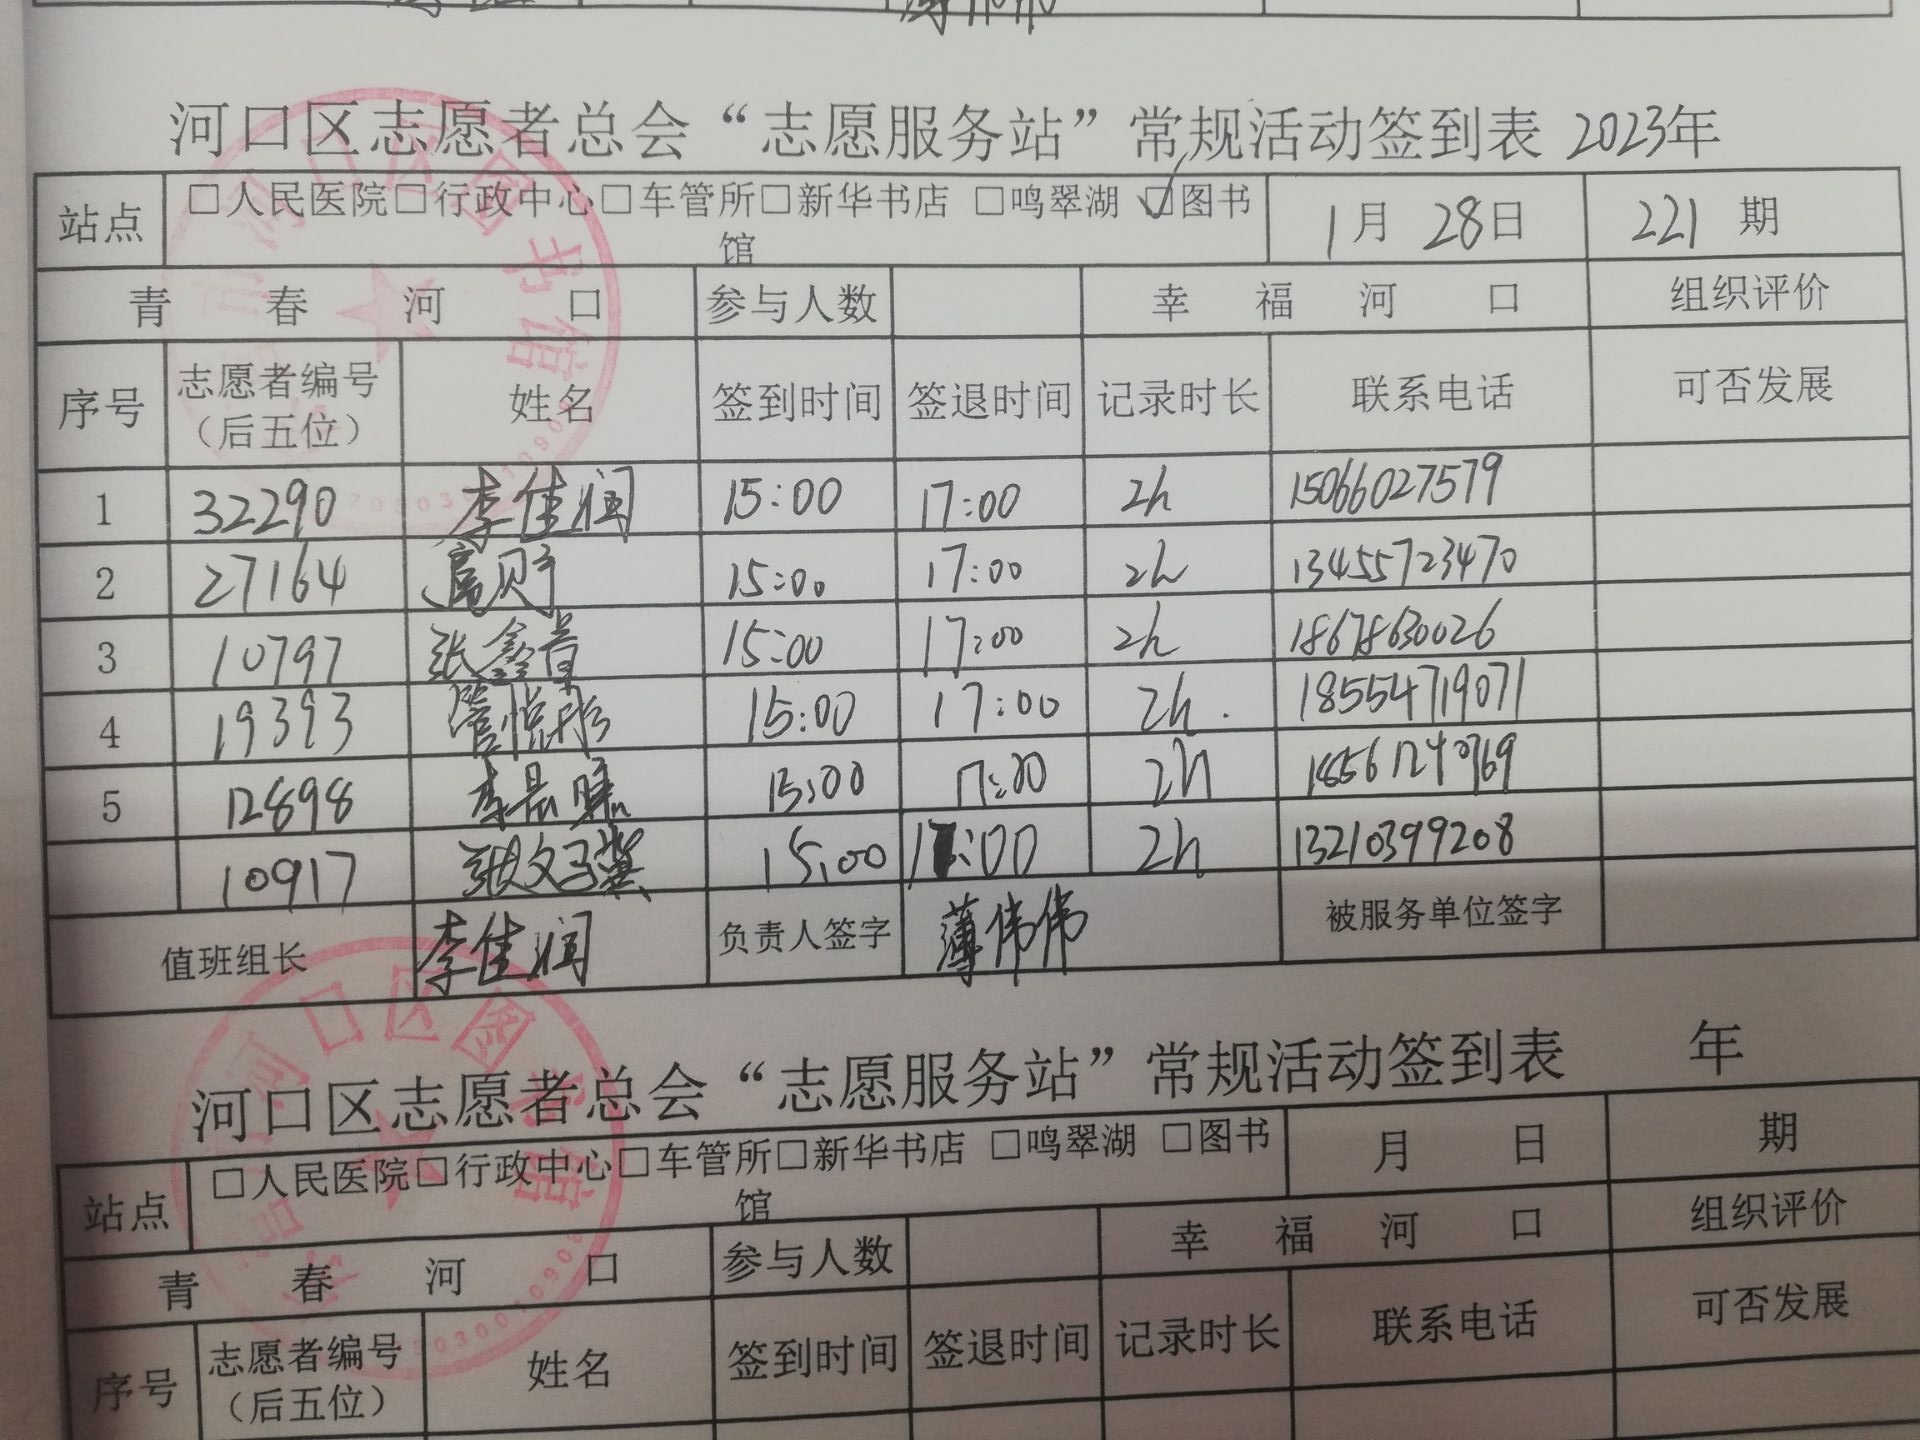 河口区志愿者总会“志愿服务站”常规活动签到表 2023年
站点 □人民医院□行政中心□车管所□新华书店 □鸣翠湖 ☑图书馆 1月28日 221 期
青春河口 参与人数 幸福河口 组织评价
序号 志愿者编号（后五位） 姓名 签到时间 签退时间 记录时长 联系电话 可否发展
1 32290 李佳润 15:00 17:00 2h 15066027579
2 27164 15:00 17:00 2h 13455723470
3 10797 张鑫 15:00 17:00 2h 18678630026
4 19393 管悦彤 15:00 17:00 2h. 18554719071
5 12898 李晨 15:00 17:00 2h
10917 张文 15:00 17:00 2h 13210399208
值班组长 李佳润 负责人签字 薄伟伟 被服务单位签字
河口区志愿者总会“志愿服务站”常规活动签到表 年
站点 □人民医院□行政中心□车管所□新华书店 □鸣翠湖 □图书馆 月 日 期
青春河口 参与人数 幸福河口 组织评价
序号 志愿者编号（后五位） 姓名 签到时间 签退时间 记录时长 联系电话 可否发展